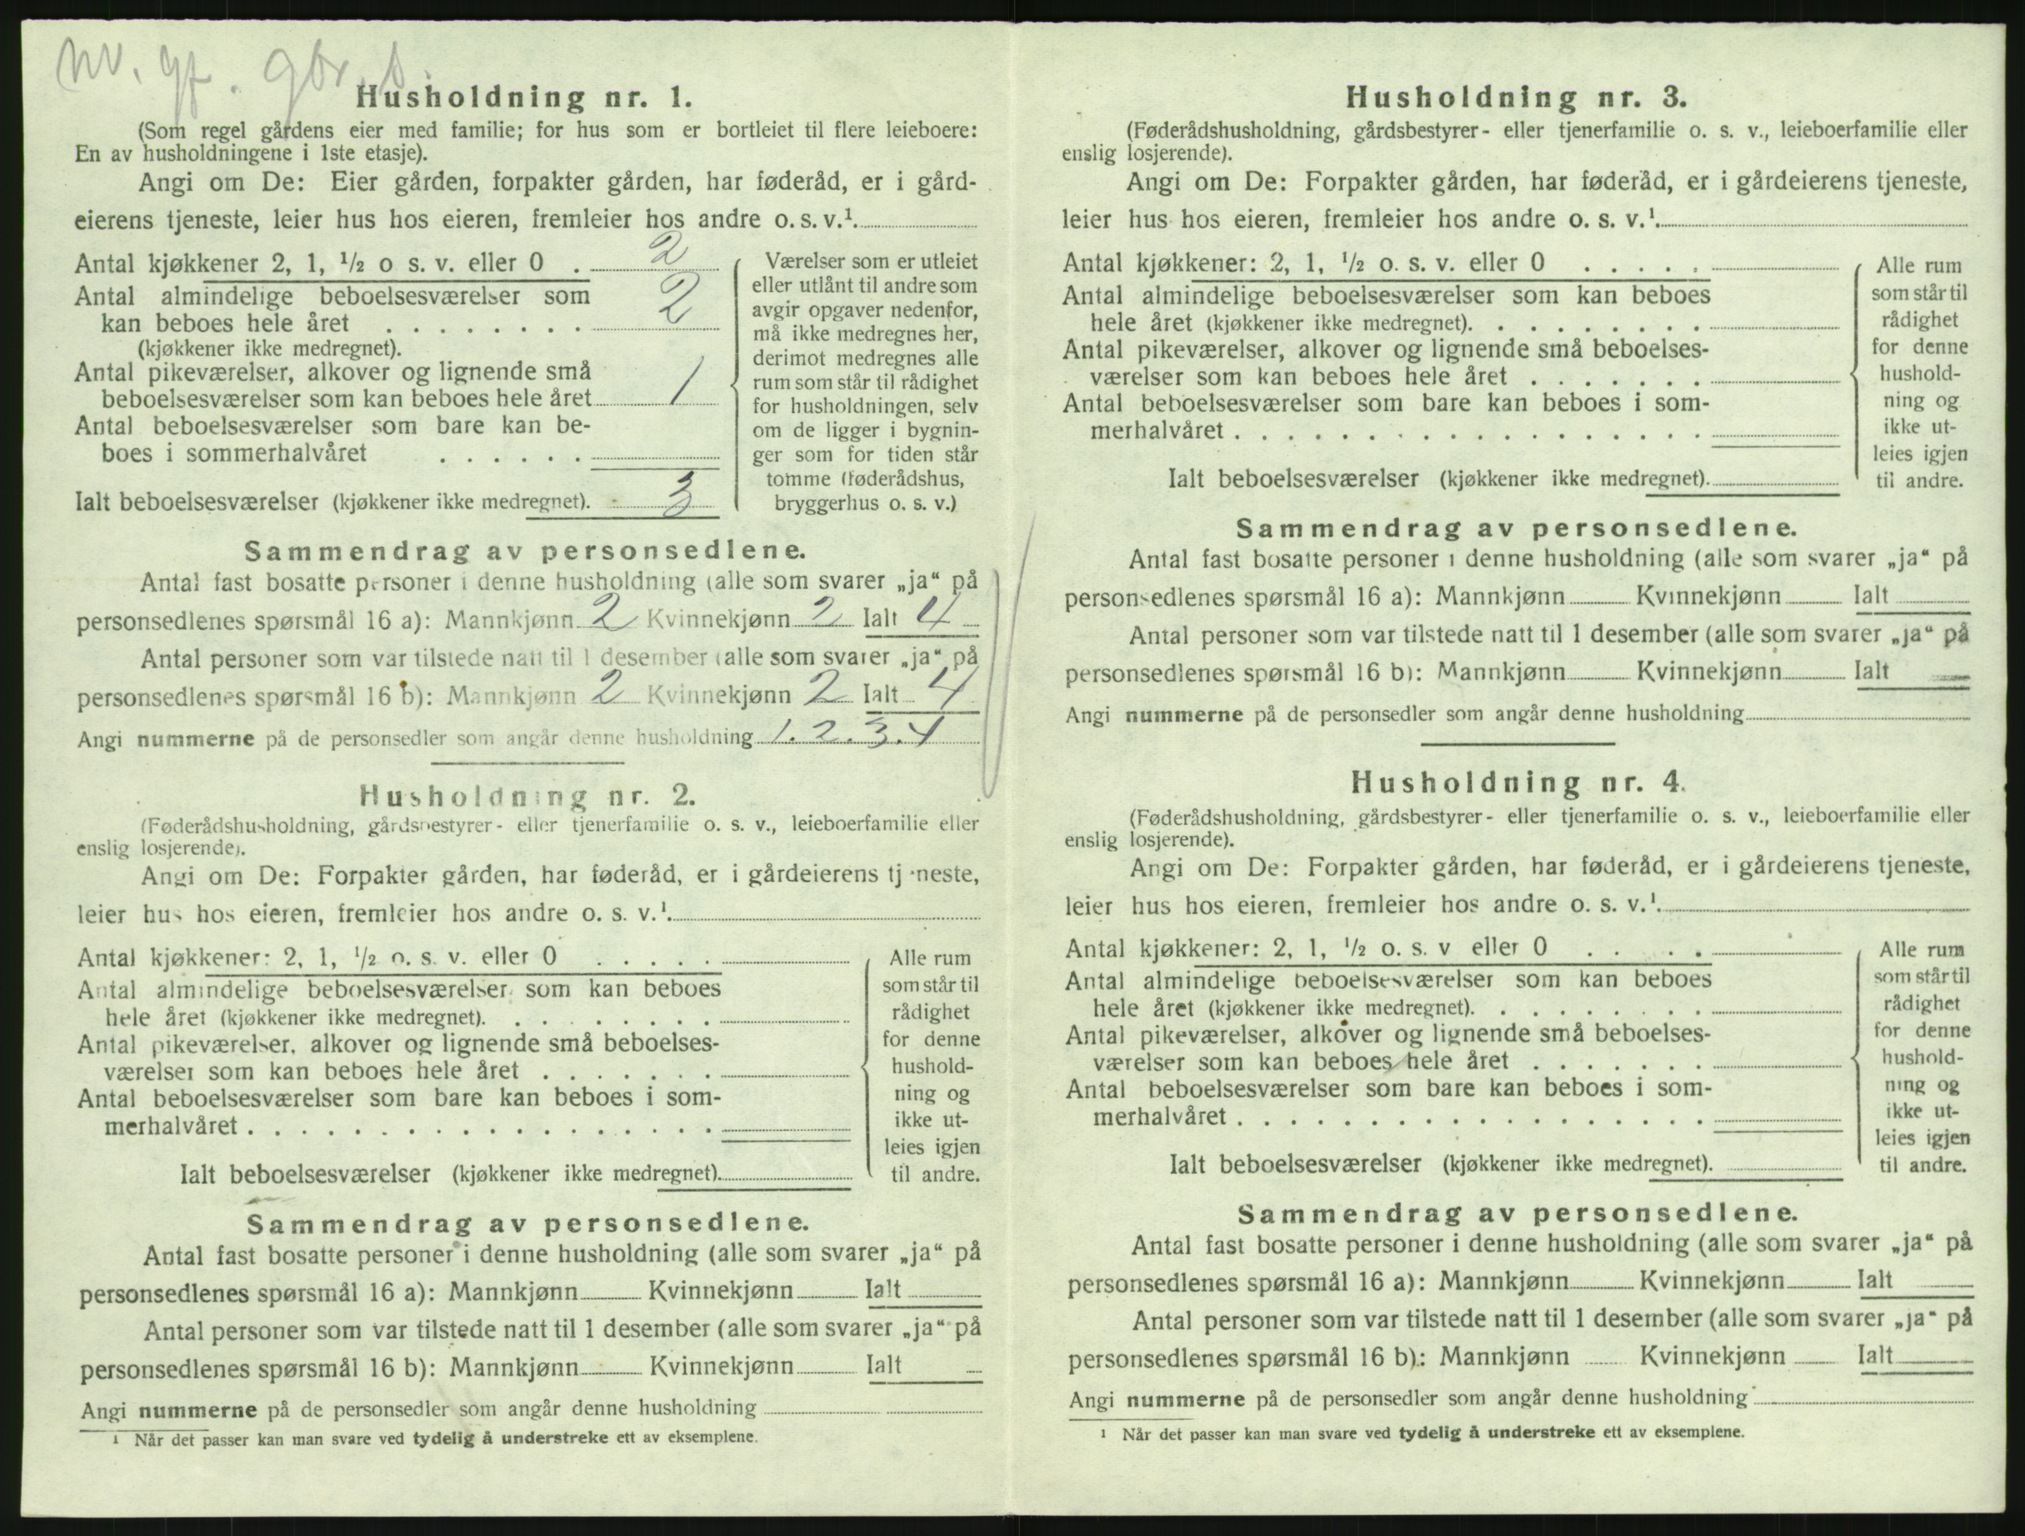 nv. gf. gbr. s.
Husholdning nr. 1.
(Som regel gårdens eier med familie; for hus som er bortleiet til flere leieboere:
En av husholdningene i 1ste etasje).
Angi om De: Eier gården, forpakter gården, har føderåd, er i gård-
eierens tjeneste, leier hus hos eieren, fremleier hos andre o. s. v.¹
Antal kjøkkener 2, 1, ½ o s. v. eller 0 . 2
Antal almindelige beboelsesværelser som
kan beboes hele året . . . . . . . . 2
(kjøkkener ikke medregnet).
Antal pikeværelser, alkover og lignende små
beboelsesværelser som kan beboes hele året 1
Antal beboelsesværelser som bare kan be-
boes i sommerhalvåret . . . . . .
Ialt beboelsesværelser (kjøkkener ikke medregnet). 3
Værelser som er utleiet
eller utlånt til andre som
avgir opgaver nedenfor,
må ikke medregnes her,
derimot medregnes alle
rum som står til rådighet
for husholdningen, selv
om de ligger i bygnin-
ger som for tiden står
tomme (føderådshus,
bryggerhus o. s. v.)
Sammendrag av personsedlene.
Antal fast bosatte personer i denne husholdning (alle som svarer „ja“ på
personsedlenes spørsmål 16 a): Mannkjønn 2 Kvinnekjønn 2 Ialt 4
Antal personer som var tilstede natt til 1 desember (alle som svarer „ja“ på
personsedlenes spørsmål 16 b): Mannkjønn 2 Kvinnekjønn 2 Ialt 4
Angi nummerne på de personsedler som angår denne husholdning 1. 2. 3. 4
Husholdning nr. 2.
(Føderådshusholdning, gårdsbestyrer- eller tjenerfamilie o. s. v., leieboerfamilie eller
enslig losjerende).
Angi om De: Forpakter gården, har føderåd, er i gårdeierens tjeneste,
leier hus hos eieren, fremleier hos andre o. s. v.¹
Antal kjøkkener: 2, 1, ½ o. s. v. eller 0 . . . . .
Antal almindelige beboelsesværelser som kan beboes
hele året (kjøkkener ikke medregnet). . . . . . . . .
Antal pikeværelser, alkover og lignende små beboelses-
værelser som kan beboes hele året . . . . . . .
Antal beboelsesværelser som bare kan beboes i som-
merhalvåret . . . . . . . . . . . . . . . . . .
Ialt beboelsesværelser (kjøkkener ikke medregnet).
Alle rum
som står til
rådighet
for denne
hushold-
ning og
ikke ut-
leies igjen
til andre.
Sammendrag av personsedlene.
Antal fast bosatte personer i denne husholdning (alle som svarer „ja“ på
personsedlenes spørsmål 16 a): Mannkjønn Kvinnekjønn Ialt
Antal personer som var tilstede natt til 1 desember (alle som svarer „ja“ på
personsedlenes spørsmål 16 b): Mannkjønn Kvinnekjønn Ialt
Angi nummerne på de personsedler som angår denne husholdning
¹ Når det passer kan man svare ved tydelig å understreke ett av eksemplene.
Husholdning nr. 3.
(Føderådshusholdning, gårdsbestyrer- eller tjenerfamilie o. s. v., leieboerfamilie eller
enslig losjerende).
Angi om De: Forpakter gården, har føderåd, er i gårdeierens tjeneste,
leier hus hos eieren, fremleier hos andre o. s. v.¹
Antal kjøkkener: 2, 1, ½ o. s. v. eller 0 . . . . .
Antal almindelige beboelsesværelser som kan beboes
hele året (kjøkkener ikke medregnet). . . . . . . . .
Antal pikeværelser, alkover og lignende små beboelses-
værelser som kan beboes hele året . . . . . . .
Antal beboelsesværelser som bare kan beboes i som-
merhalvåret . . . . . . . . . . . . . . . . . .
Ialt beboelsesværelser (kjøkkener ikke medregnet).
Alle rum
som står til
rådighet
for denne
hushold-
ning og
ikke ut-
leies igjen
til andre.
Sammendrag av personsedlene.
Antal fast bosatte personer i denne husholdning (alle som svarer „ja“ på
personsedlenes spørsmål 16 a): Mannkjønn Kvinnekjønn Ialt
Antal personer som var tilstede natt til 1 desember (alle som svarer „ja“ på
personsedlenes spørsmål 16 b): Mannkjønn Kvinnekjønn Ialt
Angi nummerne på de personsedler som angår denne husholdning
Husholdning nr. 4.
(Føderådshusholdning, gårdsbestyrer- eller tjenerfamilie o. s. v., leieboerfamilie eller
enslig losjerende).
Angi om De: Forpakter gården, har føderåd, er i gårdeierens tjeneste,
leier hus hos eieren, fremleier hos andre o. s. v.¹
Antal kjøkkener: 2, 1, ½ o. s. v eller 0 . . . . .
Antal almindelige beboelsesværelser som kan beboes
hele året (kjøkkener ikke medregnet). . . . . . . . .
Antal pikeværelser, alkover og lignende små beboelses-
værelser som kan beboes hele året . . . . . . .
Antal beboelsesværelser som bare kan beboes i som-
merhalvåret . . . . . . . . . . . . . . . . . .
Ialt beboelsesværelser (kjøkkener ikke medregnet).
Alle rum
som står til
rådighet
for denne
hushold-
ning og
ikke ut-
leies igjen
til andre.
Sammendrag av personsedlene.
Antal fast bosatte personer i denne husholdning (alle som svarer „ja“ på
personsedlenes spørsmål 16 a): Mannkjønn Kvinnekjønn Ialt
Antal personer som var tilstede natt til 1 desember (alle som svarer „ja“ på
personsedlenes spørsmål 16 b): Mannkjønn Kvinnekjønn Ialt
Angi nummerne på de personsedler som angår denne husholdning
¹ Når det passer kan man svare ved tydelig å understreke ett av eksemplene.